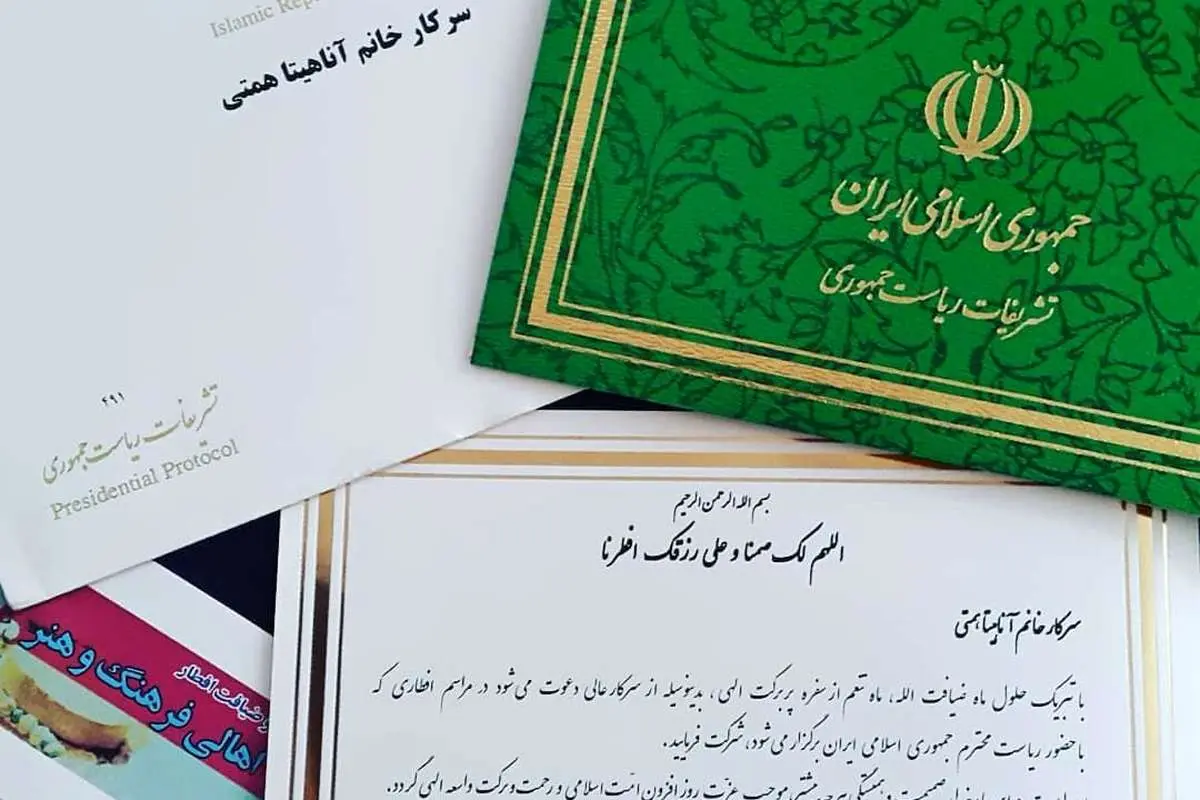 Islamic
سرکار خانم آناهیتا همتی
۴۹۱
تشریفات ریاست جمهوری
Presidential Protocol
جمهوری اسلامی ایران
تشریفات ریاست جمهوری
بسم الله الرحمن الرحیم
اللهم لک صمنا و علی رزقک افطرنا
سرکار خانم آناهیتا همتی
با تبریک حلول ماه ضیافت الله، ماه تنعم از سفره پربرکت الهی، بدینوسیله از سرکارعالی دعوت می‌شود در مراسم افطاری که
با حضور ریاست محترم جمهوری اسلامی ایران برگزار می‌شود، شرکت فرمایید.
صمیمیت و همبستگی هرچه بیشتر، موجب عزت روزافزون امت اسلامی و رحمت و برکت واسعه الهی گردد.
ضیافت افطار
اهالی فرهنگ و هنر